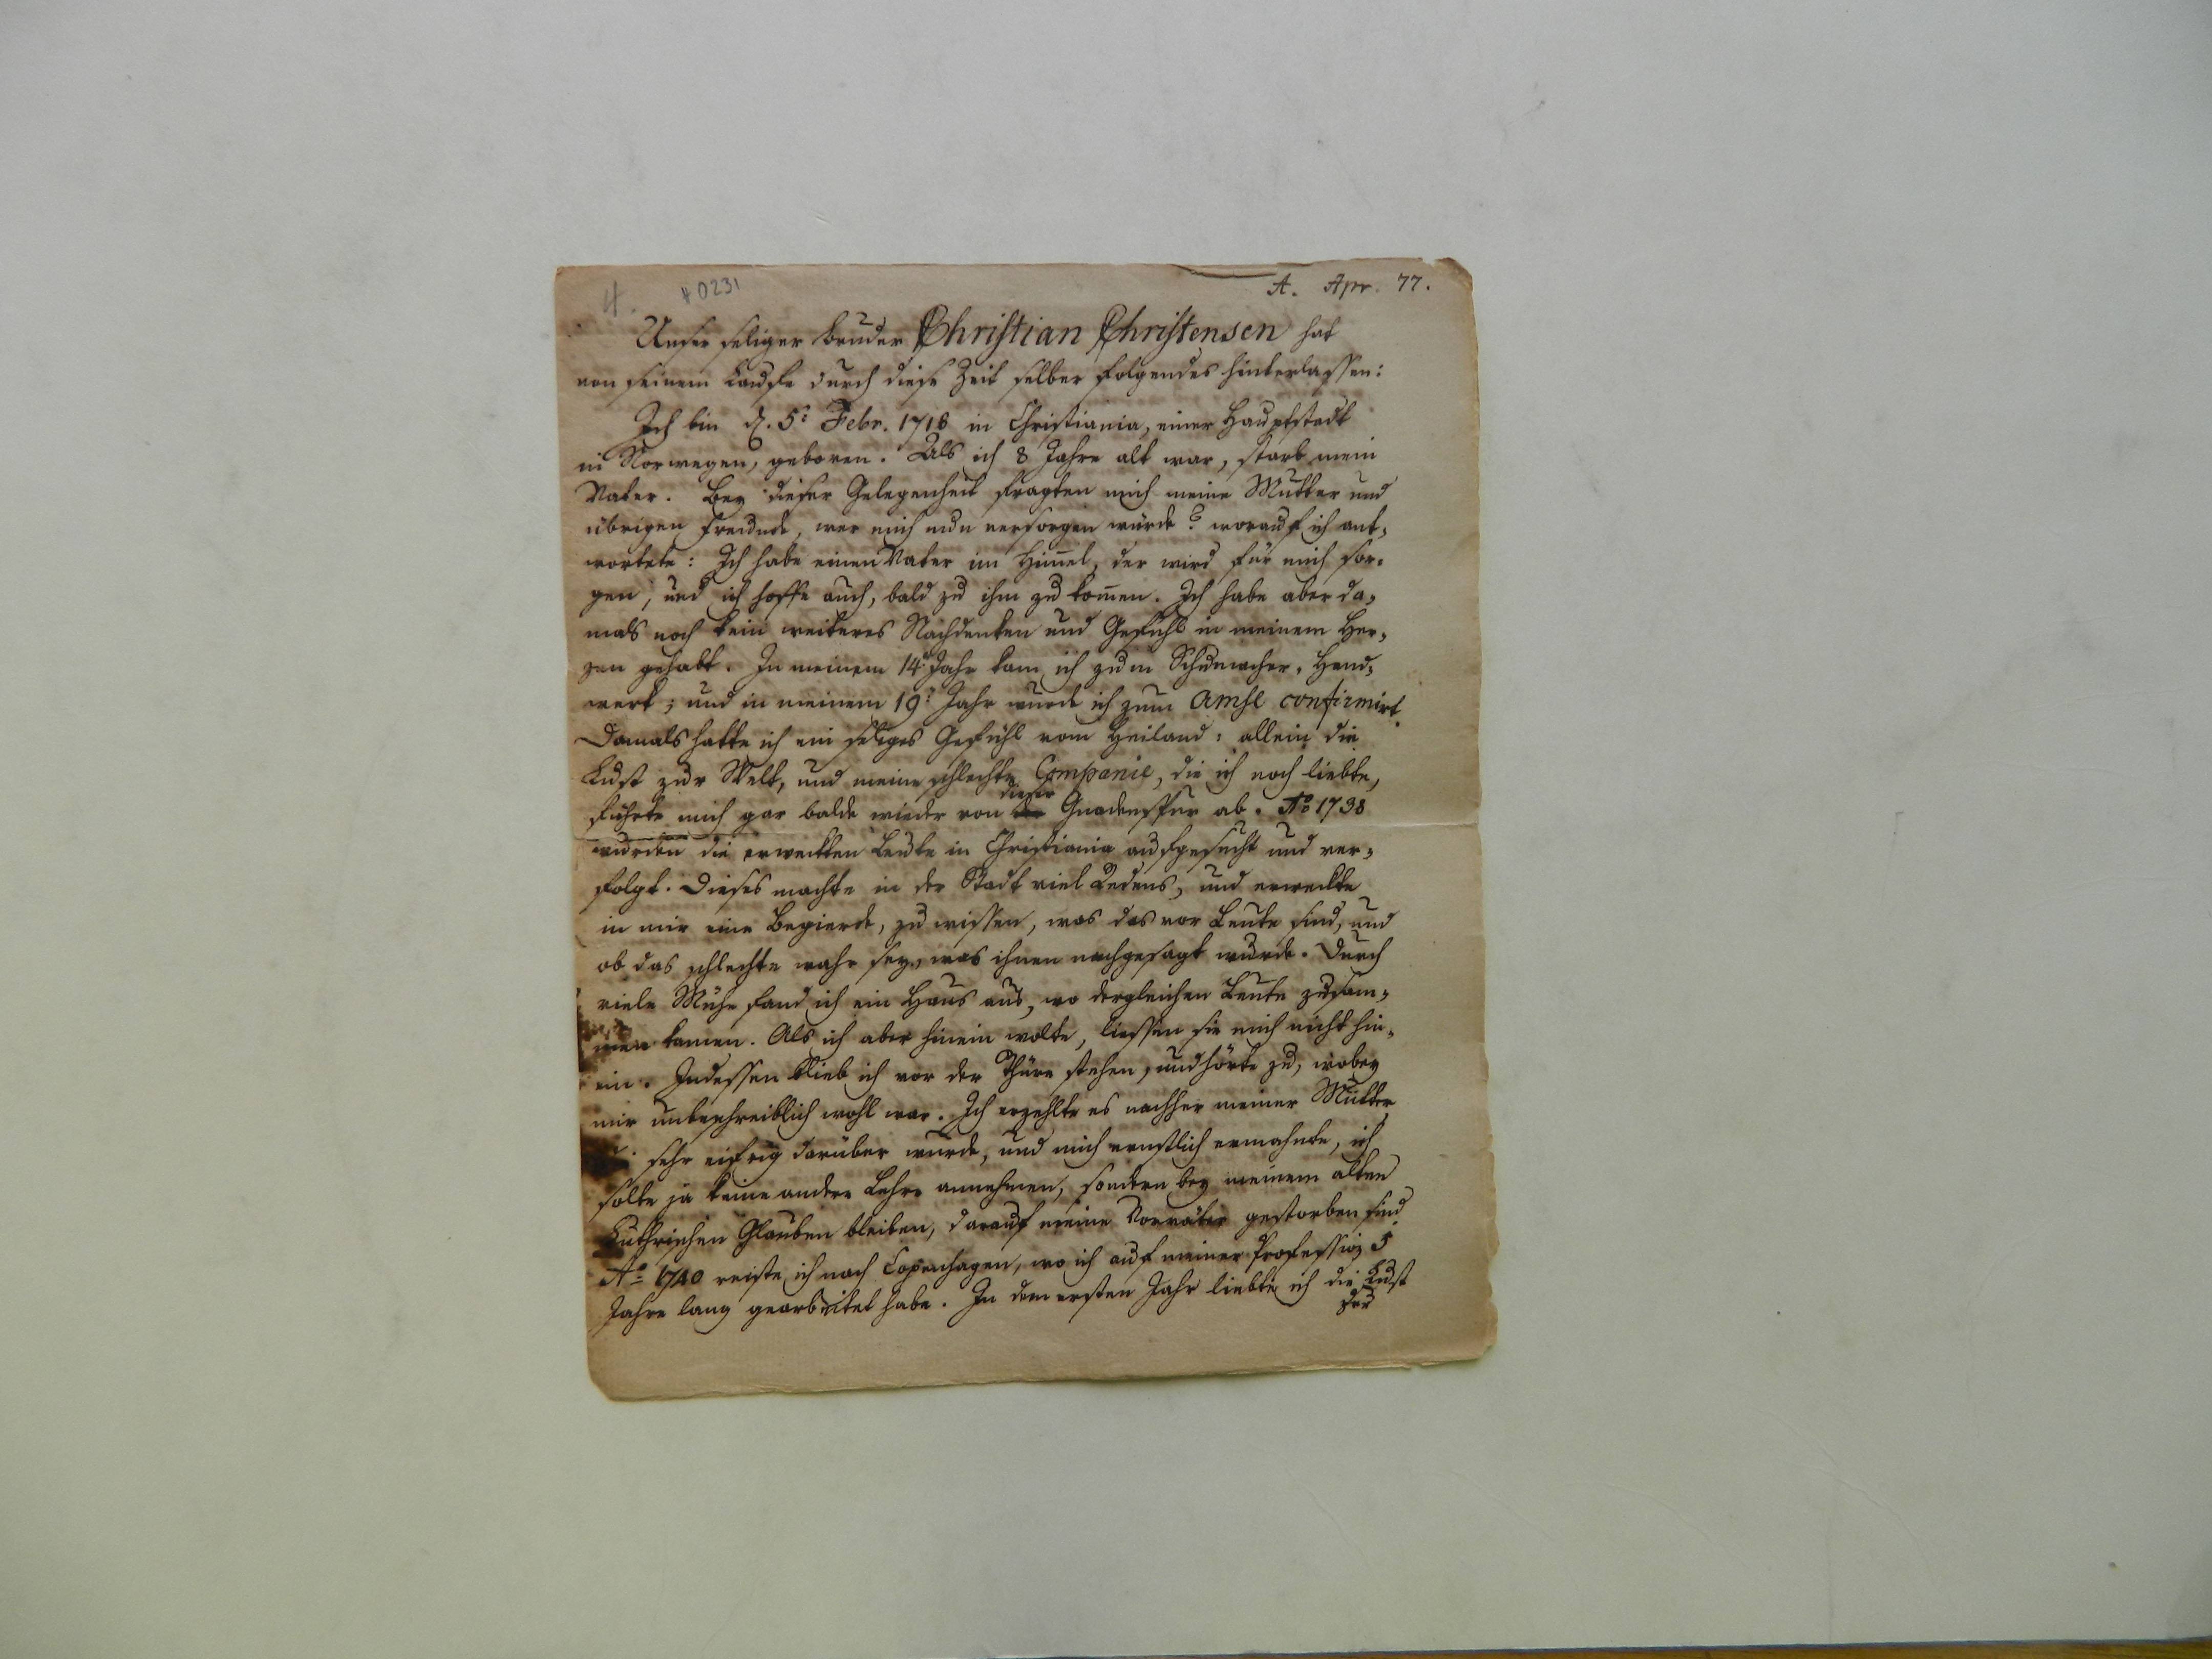 4. #0231 A. Apr. 77.
Unser seliger Bruder Christian Christensen hat
von seinem Lauffe durch diese Zeit selber folgendes hinterlassen:
Ich bin d. 5t Febr. 1718 in Christiania, einer Hauptstadt
in Norwegen, geboren. Als ich 8 Jahre alt war, starb mein
Vater. Bey dieser Gelegenheit fragten mich meine Mutter und
übrigen Freunde, wer mich nun versorgen würde? worauf ich ant-
wortete: Ich habe einen Vater im Him̄el, der wird für mich sor-
gen, und ich hoffe auch, bald zu ihm zu kom̄en. Ich habe aber da-
mals noch kein weiteres Nachdenken und Gefühl in meinem Her-
zen gehabt. In meinem 14t Jahr kam ich zum Schumacher-Hand-
werk; und in meinem 19t Jahr wurde ich zum confirmirt.
Damals hatte ich ein seliges Gefühl vom Heiland: allein die
Lust zur Welt, und meine schlechte Companie, die ich noch liebte,
führte mich gar balde wieder von dieser Gnadenspur ab. Ao 1738
wurden die erweckten Leute in Christiania aufgesucht und ver-
folgt. Dieses machte in der Stadt viel Redens, und erweckte
in mir eine Begierde, zu wissen, was das vor Leute sind, und
ob das schlechte wahr sey, was ihnen nachgesagt wurde. Durch
viele Mühe fand ich ein Haus aus, wo dergleichen Leute zusam-
men kamen. Als ich aber hinein wolte, liessen sie mich nicht hin-
ein. Indessen blieb ich vor der Thüre stehen, und hörte zu, wobey
mir unbeschreiblich wohl war. Ich erzehlte es nachher meiner Mutter
sehr eifrig darüber wurde, und mich ernstlich ermahnte, ich
solte ja keine andere Lehre annehmen, sondern bey meinem alten
Luthrischen Glauben bleiben, darauf meine Vorväter gestorben sind.
Ao 1740 reiste ich nach Copenhagen, wo ich auf meiner Profession 5
Jahre lang gearbeitet habe. In dem ersten Jahr liebte ich die Lust
der